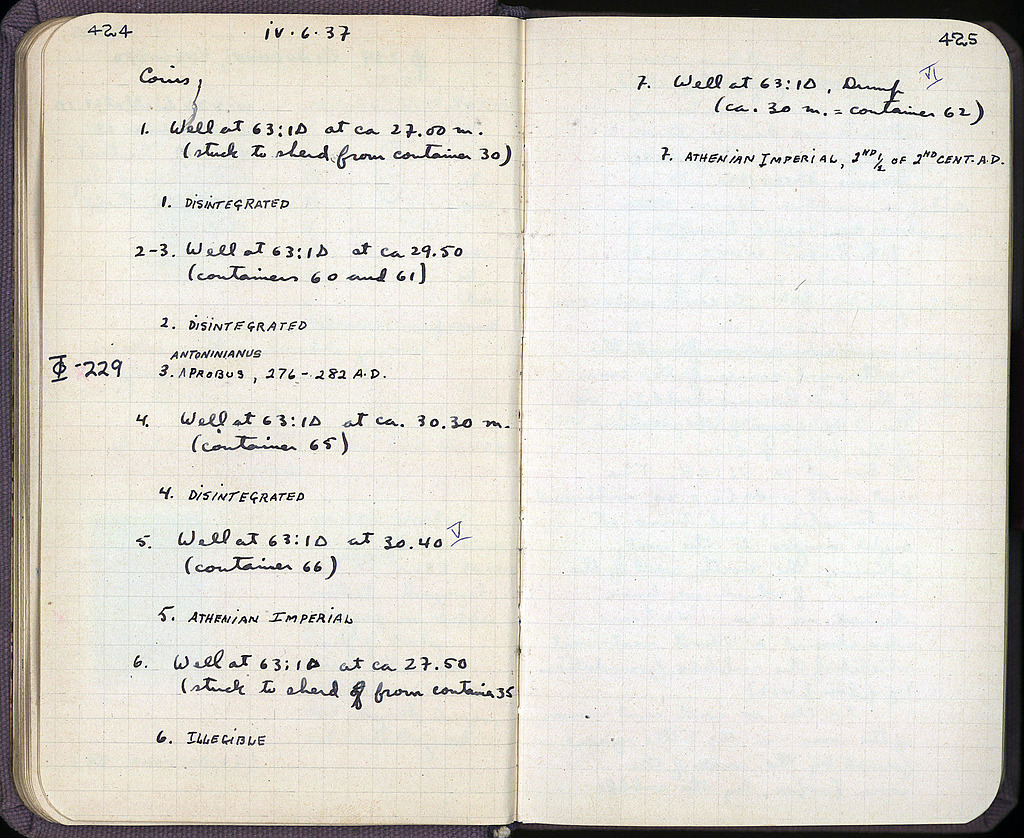 424
iv·6·37
Coins
1. Well at 63:ΙΔ at ca 27.00 m.
(stuck to sherd from container 30)
1. DISINTEGRATED
2-3. Well at 63:ΙΔ at ca 29.50
(containers 60 and 61)
2. DISINTEGRATED
ANTONINIANUS
Φ-229
3. ΛPROBUS, 276-282 A.D.
4. Well at 63:ΙΔ at ca. 30.30 m.
(container 65)
4. DISINTEGRATED
5. Well at 63:ΙΔ at 30.40 V
(container 66)
5. ATHENIAN IMPERIAL
6. Well at 63:ΙΔ at ca 27.50
(stuck to sherd from container 35
6. ILLEGIBLE
425
7. Well at 63:ΙΔ, Dump VI
(ca. 30 m. = container 62)
7. ATHENIAN IMPERIAL, 2ND 1/2 OF 2ND CENT. A.D.